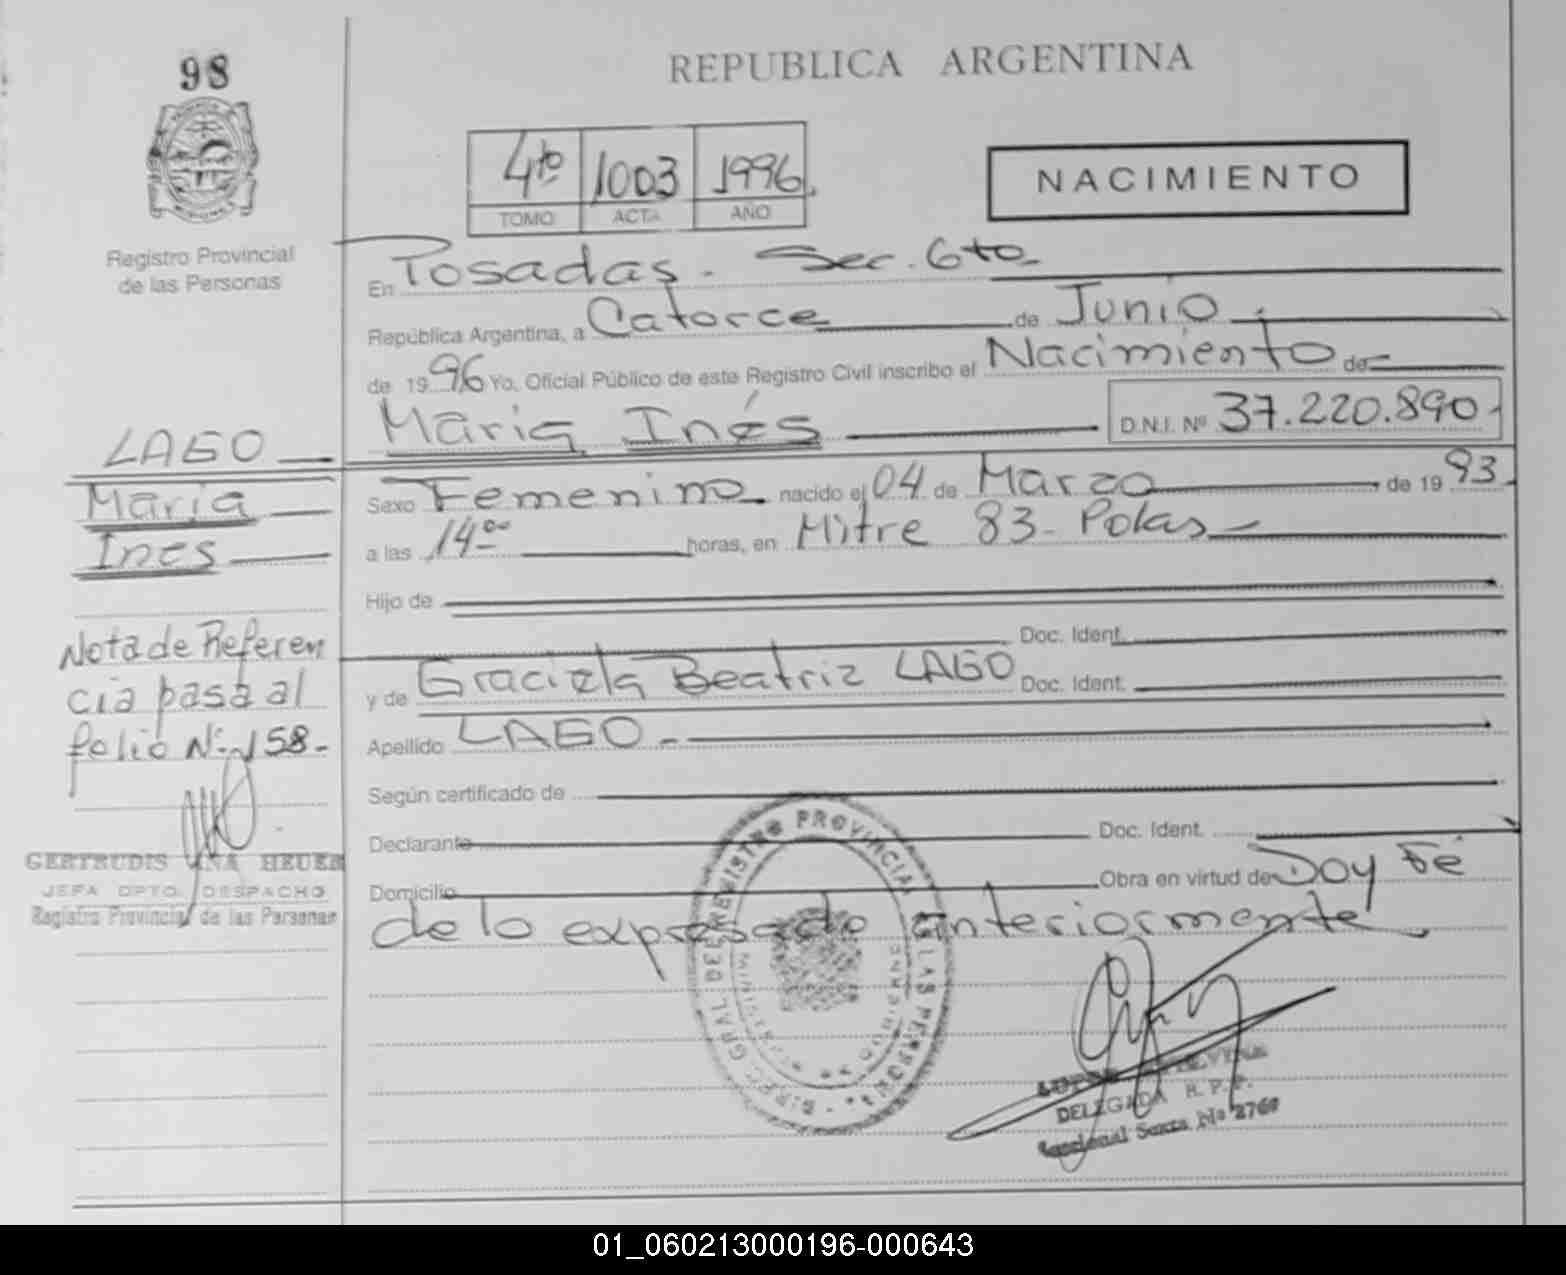 98
REPUBLICA ARGENTINA
4to 1003 1996
TOMO ACTA AÑO
NACIMIENTO
Registro Provincial
de las Personas
En Posadas. Sec. 6to
República Argentina, a Catorce de Junio
de 1996 Yo, Oficial Público de este Registro Civil inscribo el Nacimiento de
Maria Inés D.N.I. Nº 37.220.890
LAGO
Maria
Ines
Sexo Femenino nacido el 04 de Marzo de 1993
a las 14.00 horas, en Mitre 83 - Pokas
Hijo de
Doc. Ident.
y de Graciela Beatriz LAGO Doc. Ident.
Apellido LAGO
Según certificado de
Declarante Doc. Ident.
Domicilio Obra en virtud de Doy Fé
de lo expresado anteriormente
Nota de Referen
cia pasa al
folio Nº 158.-
GERTRUDIS ANA HEUER
JEFA DPTO. DESPACHO
Registro Provincial de las Personas
REGISTRO PROVINCIAL DE LAS PERSONAS
DELEGADA R.P.P.
Seccional Sexta Nº 2760
01_060213000196-000643